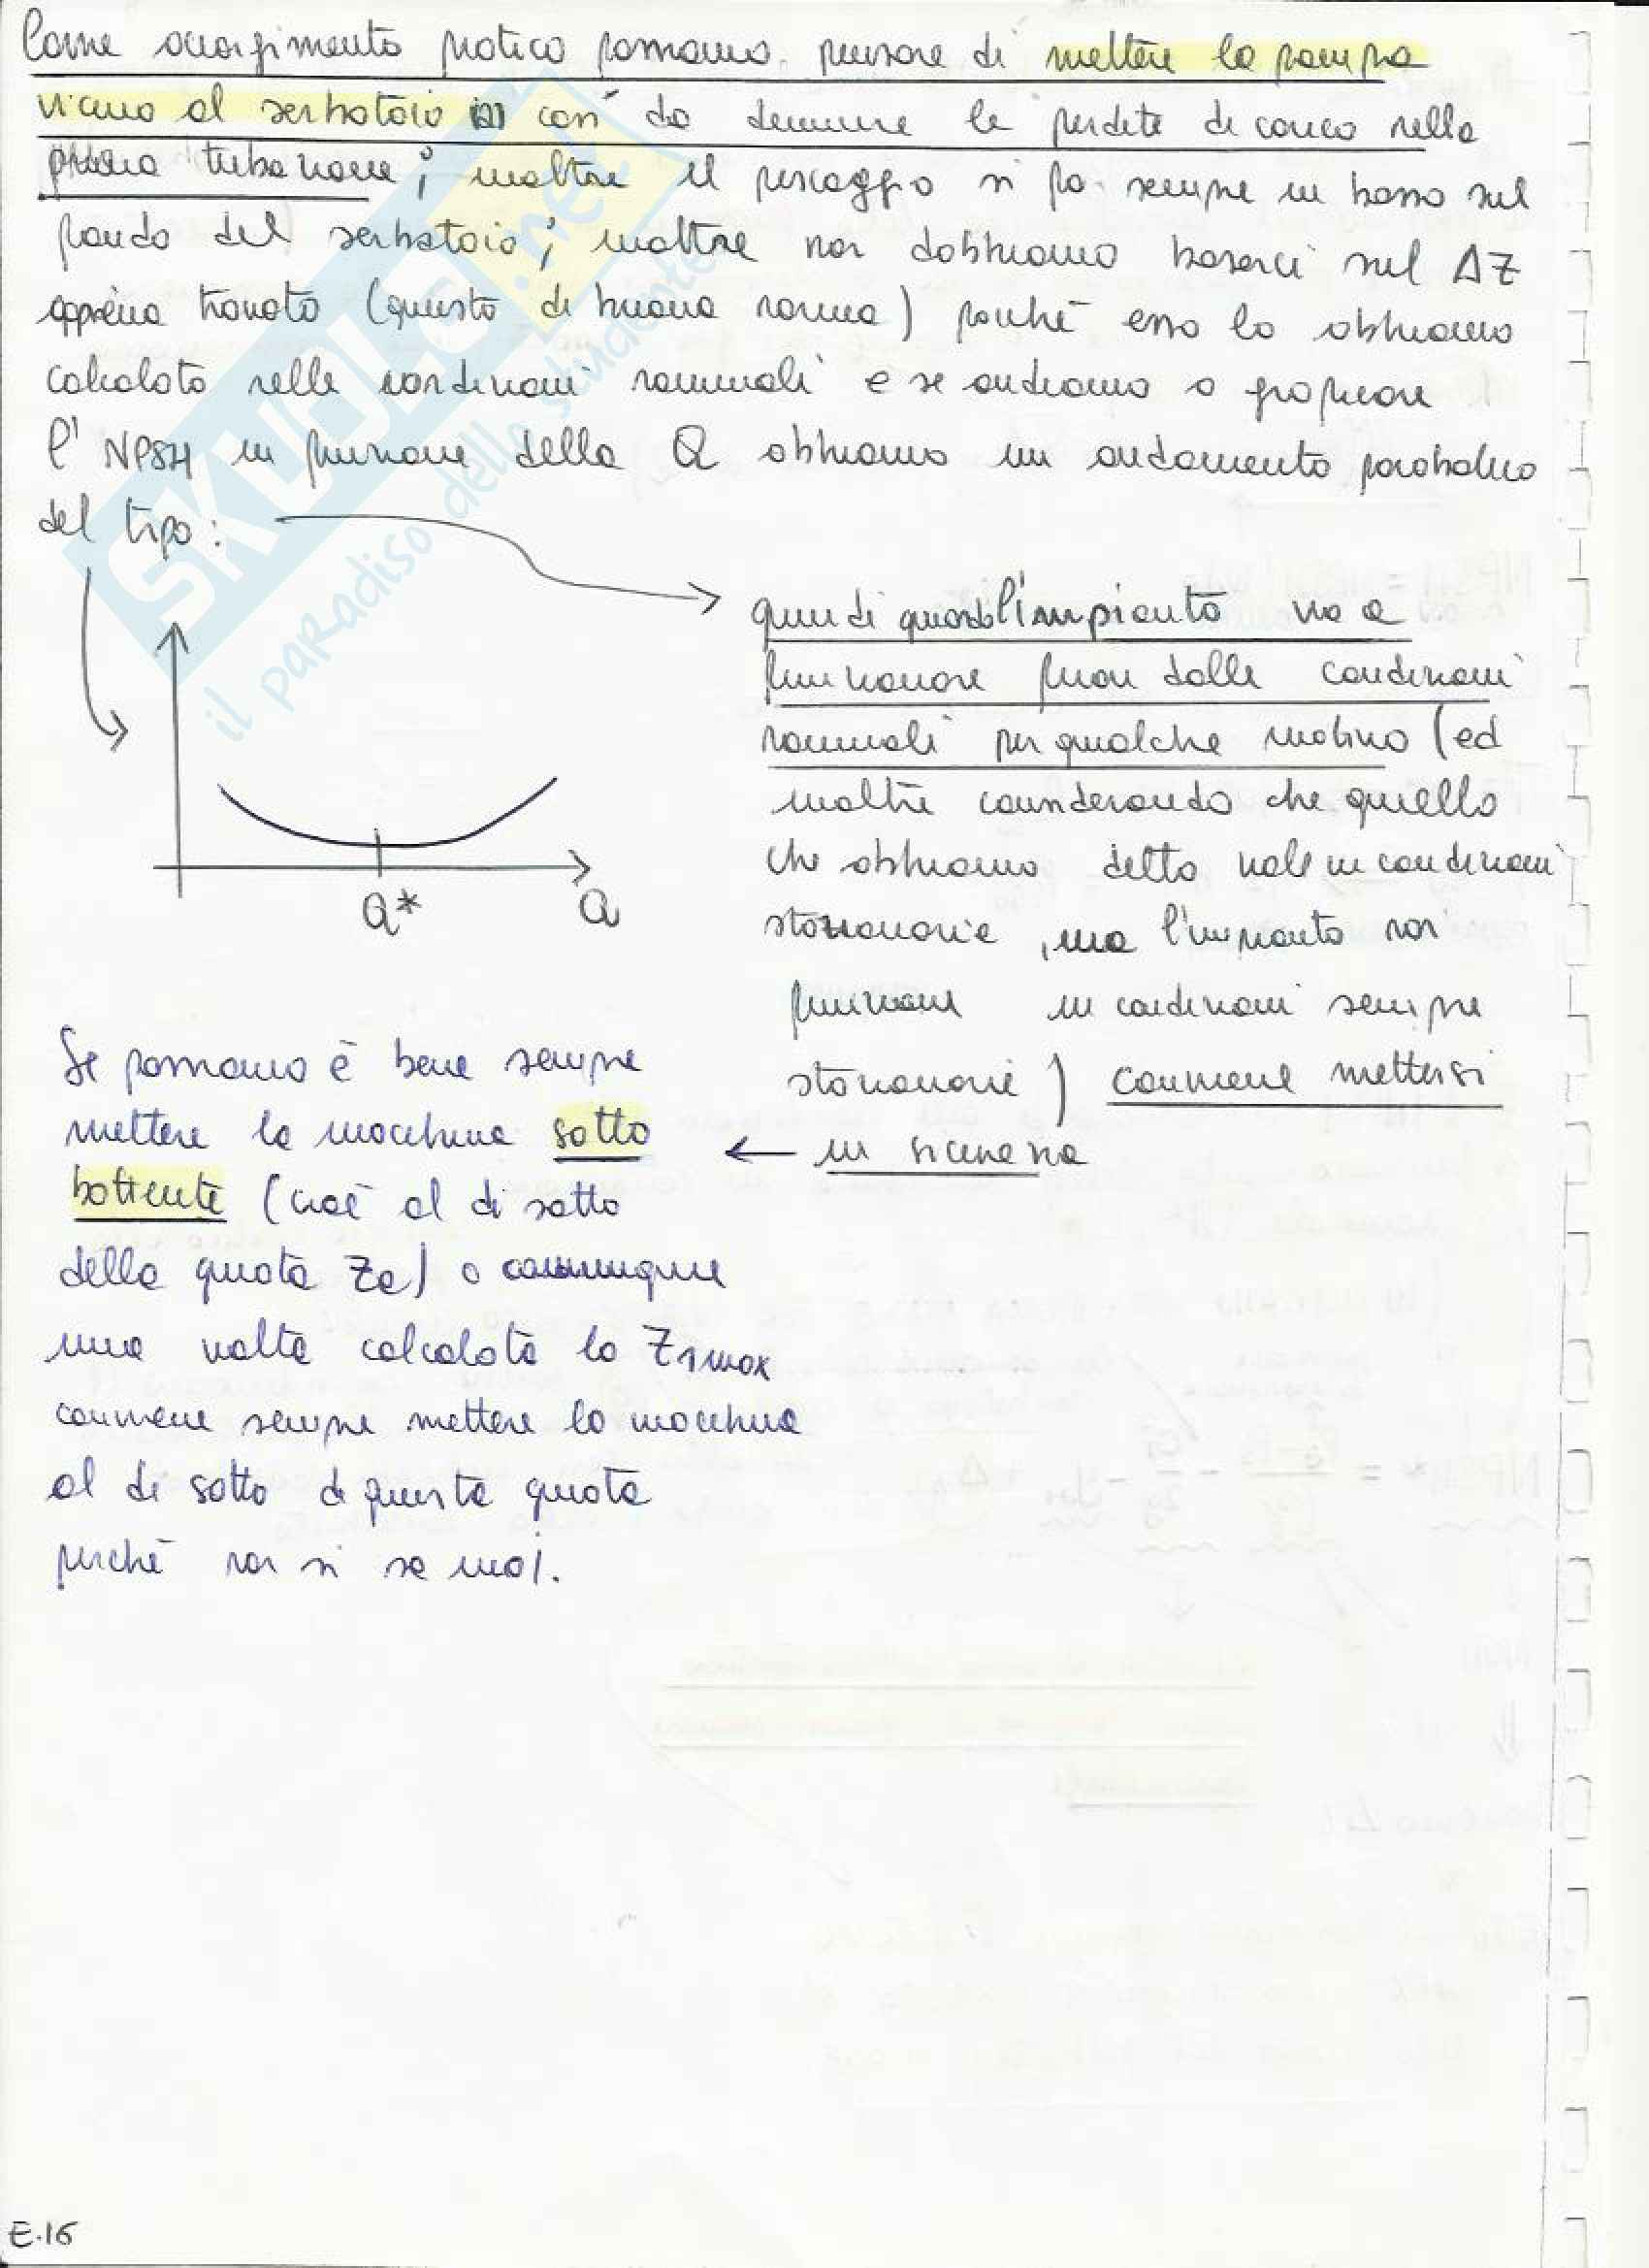 Come accorgimento pratico possiamo pensare di mettere la pompa
vicino al serbatoio così da diminuire le perdite di carico nella
prima tubazione; inoltre il pescaggio si fa sempre in basso sul
fondo del serbatoio; inoltre non dobbiamo basarci sul ΔZ
appena trovato (questo di buona norma) poiché esso lo abbiamo
calcolato nelle condizioni nominali e se andiamo a graficare
l'NPSH in funzione della Q abbiamo un andamento parabolico
del tipo:
Q*
Q
quindi quando l'impianto va a
funzionare fuori dalle condizioni
nominali per qualche motivo (ed
inoltre considerando che quello
che abbiamo detto vale in condizioni
stazionarie, ma l'impianto non
funziona in condizioni sempre
stazionarie) conviene mettersi
in sicurezza
Se possiamo è bene sempre
mettere la macchina sotto
battente (cioè al di sotto
della quota Za) o comunque
una volta calcolata la Z1max
conviene sempre mettere la macchina
al di sotto di questa quota
perchè non si sa mai.
E.16
SKUOLA.net
il paradiso dello studente